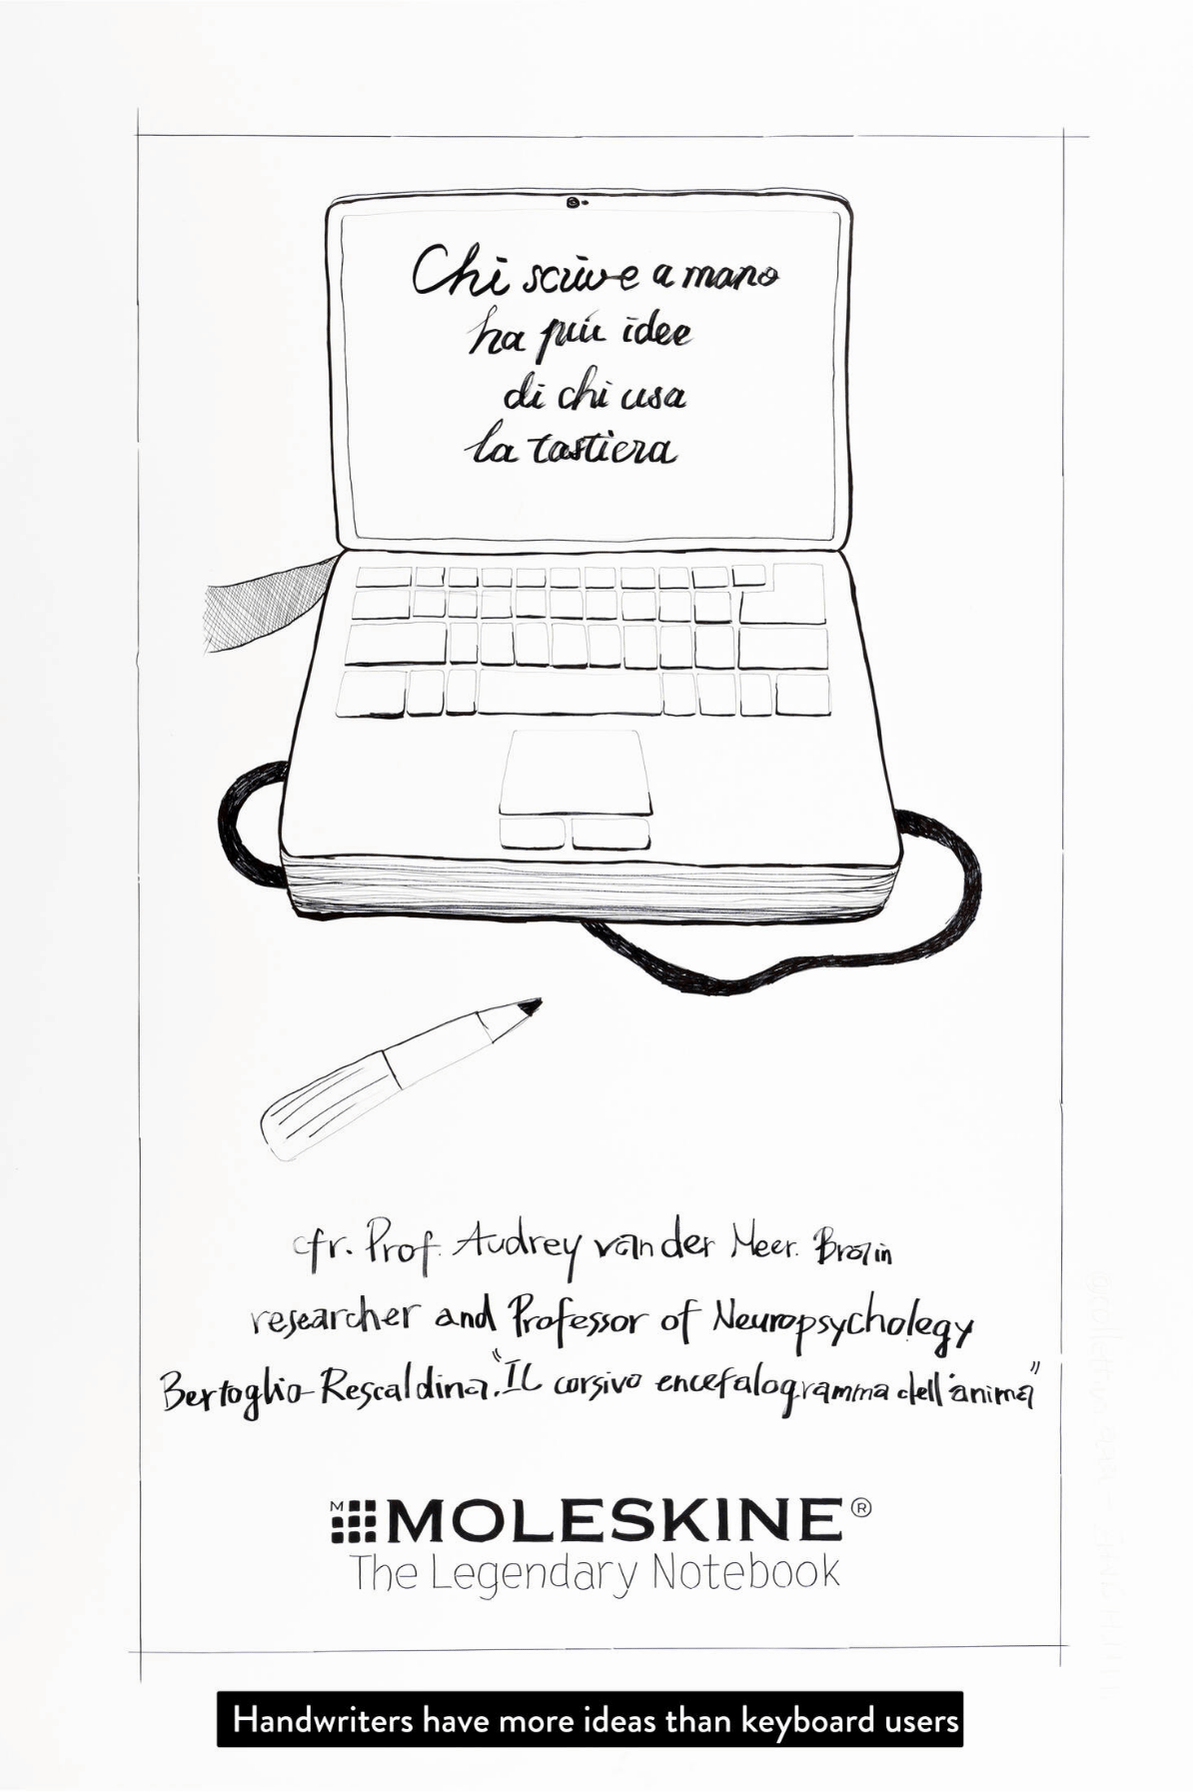 Chi scrive a mano
ha più idee
di chi usa
la tastiera
cfr. Prof. Audrey van der Meer. Brain
researcher and Professor of Neuropsychology
Bertoglio-Rescaldina. "Il corsivo encefalogramma dell'anima"
M MOLESKINE®
The Legendary Notebook
Handwriters have more ideas than keyboard users